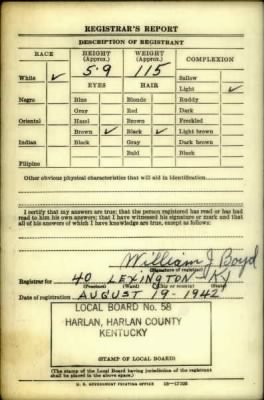 REGISTRAR'S REPORT
DESCRIPTION OF REGISTRANT
RACE
HEIGHT
(Approx.)
WEIGHT
(Approx.)
COMPLEXION
5-9
115
White ✓
EYES
HAIR
Sallow
Light ✓
Negro
Blue
Blonde
Ruddy
Gray
Red
Dark
Oriental
Hazel
Brown
Freckled
Brown ✓
Black ✓
Light brown
Indian
Black
Gray
Dark brown
Bald
Black
Filipino
Other obvious physical characteristics that will aid in identification
I certify that my answers are true; that the person registered has read or has had
read to him his own answers; that I have witnessed his signature or mark and that
all of his answers of which I have knowledge are true, except as follows:
William J Boyd
(Signature of registrar)
Registrar for 40 LEXINGTON - KY
(Precinct) (City or county) (State)
Date of registration AUGUST 19-1942
LOCAL BOARD No. 58
HARLAN, HARLAN COUNTY
KENTUCKY
(STAMP OF LOCAL BOARD)
(The stamp of the Local Board having jurisdiction of the registrant
shall be placed in the above space.)
U. S. GOVERNMENT PRINTING OFFICE